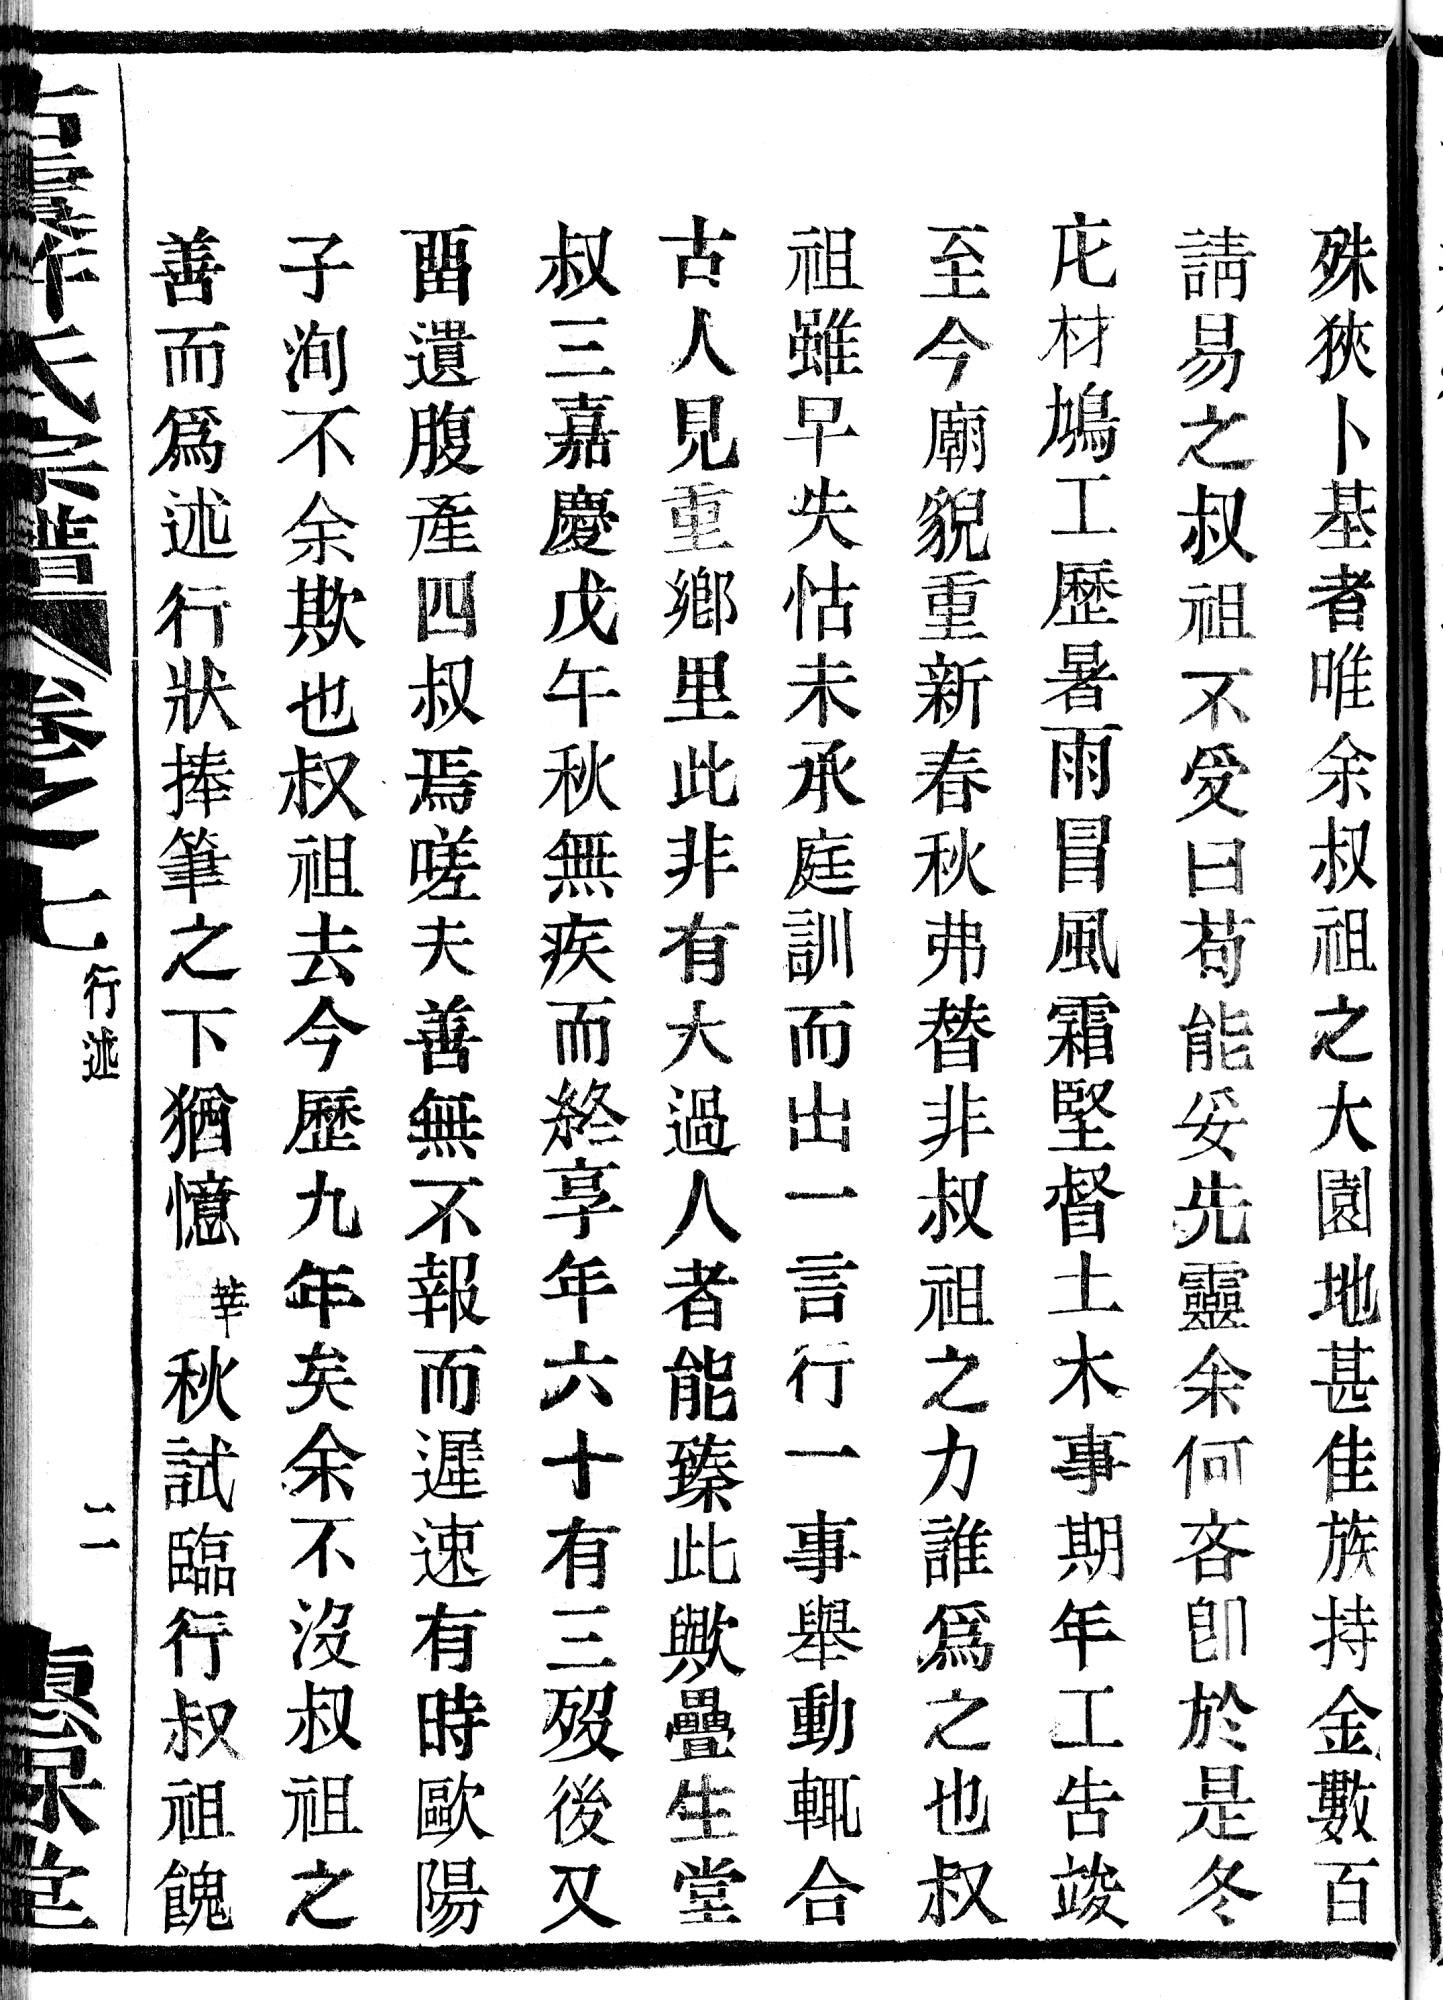 殊狹卜基者唯余叔祖之大園地甚佳族持金數百
請易之叔祖不受曰茍能妥先靈余何吝卽於是冬
庀材鳩工歷暑雨冒風霜堅督土木事期年工告竣
至今廟貌重新春秋弗替非叔祖之力誰爲之也叔
祖雖早失怙未承庭訓而出一言行一事舉動輒合
古人見重鄉里此非有大過人者能臻此歟疊生堂
叔三嘉慶戊午秋無疾而終享年六十有三歿後又
畱遺腹產四叔焉嗟夫善無不報而遲速有時歐陽
子洵不余欺也叔祖去今歷九年矣余不沒叔祖之
善而爲述行狀捧筆之下猶憶莘秋試臨行叔祖餽
氏宗譜 卷之七 行述 二 惠保堂